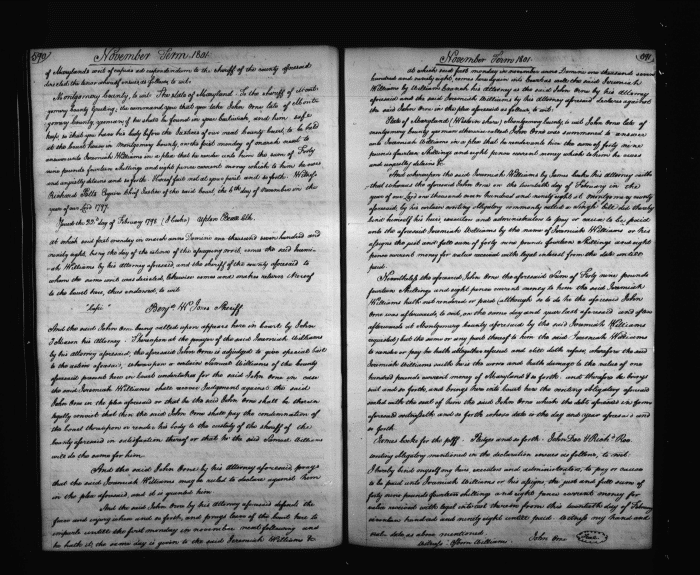 540
November Term 1801
of Maryland's writ of capias ad respondendum to the Sheriff of the county aforesaid
directed the tenor whereof ensues as follows, to wit.
Montgomery County, to wit. The State of Maryland. To the Sheriff of Mont-
gomery County Greeting, We command you that you take John Orme late of Mont-
gomery County yeoman if he shall be found in your bailiwick, and him safe
keep, so that you have his body before the Justices of our next county court, to be held
at the court house in Montgomery County, on the first monday of march next to
answer unto Jeremiah Williams in a plea that he render unto him the sum of Forty
nine pounds fourteen shillings and eight pence current money which to him he owes
and unjustly detains and so forth. Hereof fail not at your peril and so forth. Witness
Richard Potts Esquire chief Justice of the said court, the 6th day of November in the
year of our Lord 1797.
Issued the 22d day of February 1798 (J Cooke) Upton Beall Clk.
At which said first monday in march anno Domini one thousand seven hundred and
ninety eight, being the day of the return of the aforegoing writ, comes the said Jeremi-
ah Williams by his attorney aforesaid and the Sheriff of the county aforesaid to
whom the same writ was directed, likewise comes and makes return thereof
to the court here, thus endorsed, to wit
"Cepi" Benjn W. Jones Sheriff
And the said John Orme being called upon appears here in court by John
T Mason his Attorney. Whereupon at the prayer of the said Jeremiah Williams
by his attorney aforesaid, the aforesaid John Orme is adjudged to give special bail
to the action aforesaid, whereupon a certain Samuel Williams of the county
aforesaid present here in court undertakes for the said John Orme in case
the said Jeremiah Williams shall recover Judgment against the said
John Orme in the plea aforesaid or that he the said John Orme shall be therein
legally convict that then the said John Orme shall pay the condemnation of
the court thereupon or render his body to the custody of the sheriff of the
county aforesaid in satisfaction thereof or that he the said Samuel Williams
will do the same for him.
And the said John Orme by his attorney aforesaid prays
that the said Jeremiah Williams may be ruled to declare against him
in the plea aforesaid, and it is granted him.
And the said John Orme by his attorney aforesaid defends the
force and injury when and so forth, and prays leave of the court here to
imparle until the first monday in november next following and
he hath it; the same day is given to the said Jeremiah Williams &c
November Term 1801
541
At which said first monday in november anno Domini one thousand seven
hundred and ninety eight, come here again into Court as well the said Jeremiah
Williams by his attorney as the said John Orme by his Attorney
aforesaid and the said Jeremiah Williams by his attorney aforesaid declares against
the said John Orme in the plea aforesaid as follows, to wit.
State of Maryland (Western shore) Montgomery County, to wit John Orme late of
montgomery county yeoman otherwise called John Orme was summoned to answer
unto Jeremiah Williams in a plea that he render unto him the sum of forty nine
pounds fourteen Shillings and eight pence current money which to him he owes
and unjustly detains &c.
And whereupon the said Jeremiah Williams by James Cooke his attorney saith
that whereas the aforesaid John Orme on the twentieth day of February in the
year of our Lord one thousand seven hundred and ninety eight at Montgomery county
aforesaid by his certain writing obligatory commonly called a single bill did thereby
bind himself his heirs, executors and administrators to pay or cause to be paid
unto the aforesaid Jeremiah Williams by the name of Jeremiah Williams or his
assigns the just and full sum of forty nine pounds fourteen Shillings and eight
pence current money for value received with legal interest from the date until
paid.
Nevertheless the aforesaid John Orme the aforesaid Sum of Forty nine pounds
fourteen Shillings and eight pence current money to him the said Jeremiah
Williams hath not rendered or paid (although so to do he the aforesaid John
Orme was afterwards, to wit, on the same day and year last aforesaid and often
afterwards at Montgomery County aforesaid by the said Jeremiah Williams
requested) but the same or any part thereof to him the said Jeremiah Williams
to render or pay he hath altogether refused and still doth refuse, wherefore the said
Jeremiah Williams saith he is the worse and hath damage to the value of one
hundred pounds current money of Maryland & so forth. and therefore he brings
suit and so forth, and brings here into court here the writing obligatory aforesaid
sealed with the seal of him the said John Orme which the debt aforesaid in form
aforesaid witnesseth and so forth whose date is the day and year aforesaid and
so forth
James Cooke for the plff. Pledges and so forth. John Doe & Richd Roe.
writing obligatory mentioned in the declaration ensues as follows, to wit:
I hereby bind myself my heirs, executors and administrators, to pay or cause
to be paid unto Jeremiah Williams or his assigns the just and full sum of
forty nine pounds fourteen shillings and eight pence current money for
value received with legal interest thereon from this twentieth day of February
seventeen hundred and ninety eight untill paid. Witness my hand and
seal date as above mentioned.
Witness John Orme (Seal)